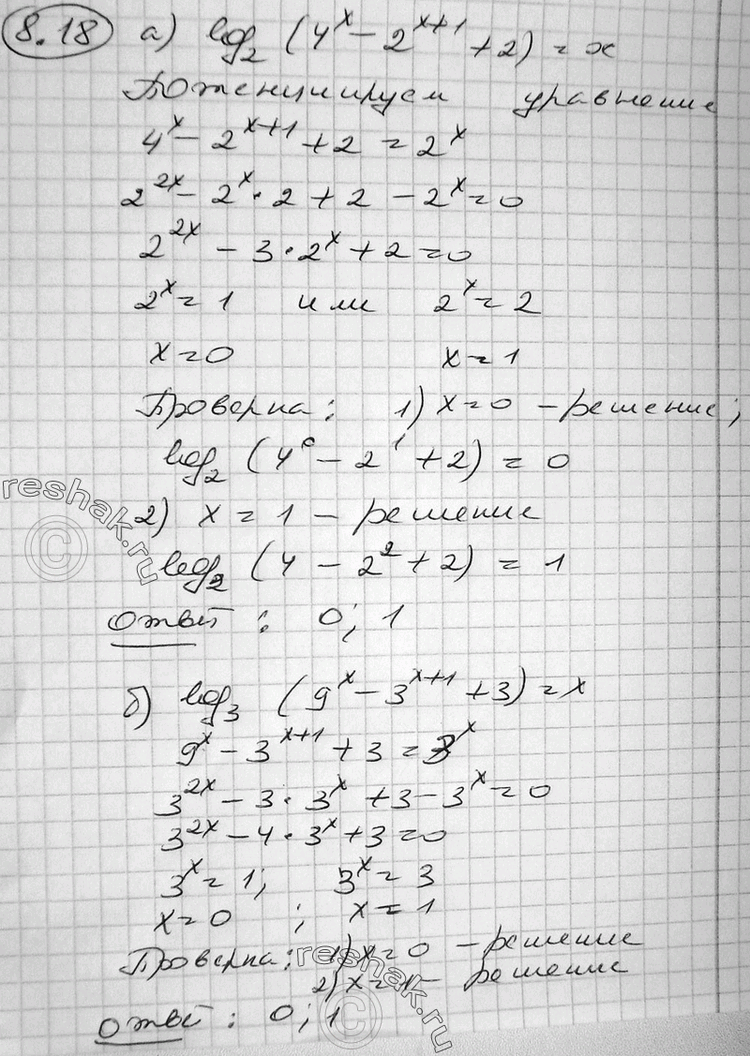 8.18 а) log₂ (4ˣ - 2ˣ⁺¹ + 2) = x
Потенциируем уравнение
4ˣ - 2ˣ⁺¹ + 2 = 2ˣ
2²ˣ - 2ˣ · 2 + 2 - 2ˣ = 0
2²ˣ - 3 · 2ˣ + 2 = 0
2ˣ = 1 или 2ˣ = 2
x = 0 x = 1
Проверка: 1) x = 0 - решение;
log₂ (4⁰ - 2¹ + 2) = 0
reshak.ru
2) x = 1 - решение
©
log₂ (4 - 2² + 2) = 1
Ответ: 0; 1
б) log₃ (9ˣ - 3ˣ⁺¹ + 3) = x
9ˣ - 3ˣ⁺¹ + 3 = 3ˣ
3²ˣ - 3 · 3ˣ + 3 - 3ˣ = 0
3²ˣ - 4 · 3ˣ + 3 = 0
3ˣ = 1; 3ˣ = 3
x = 0 ; x = 1
Проверка: 1) x = 0 - решение
2) x = 1 - решение
reshak.ru
©
Ответ: 0; 1